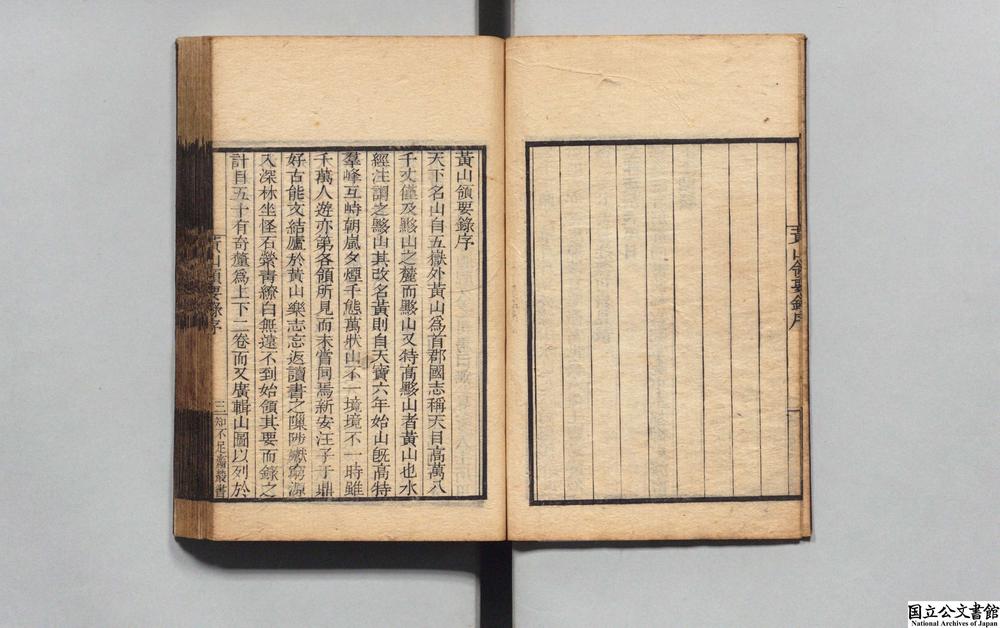 黃山領要錄序
黃山領要錄序
天下名山自五嶽外黃山爲首郡國志稱天目高萬八
千丈僅及黟山之麓而黟山又特高黟山者黃山也水
經注謂之黟山其改名黃則自天寶六年始山旣高特
羣峰互峙朝嵐夕煙千態萬狀山不一境境不一時雖
千萬人遊亦第各領所見而未嘗同焉新安汪子于鼎
好古能文結廬於黃山樂志忘返讀書之隙陟巘窮源
入深林坐怪石縈青繚白無遠不到始領其要而錄之
計目五十有奇釐爲上下二卷而又廣輯山圖以列於
黃山領要錄序
三
知不足齋叢書
国立公文書館
National Archives of Japan